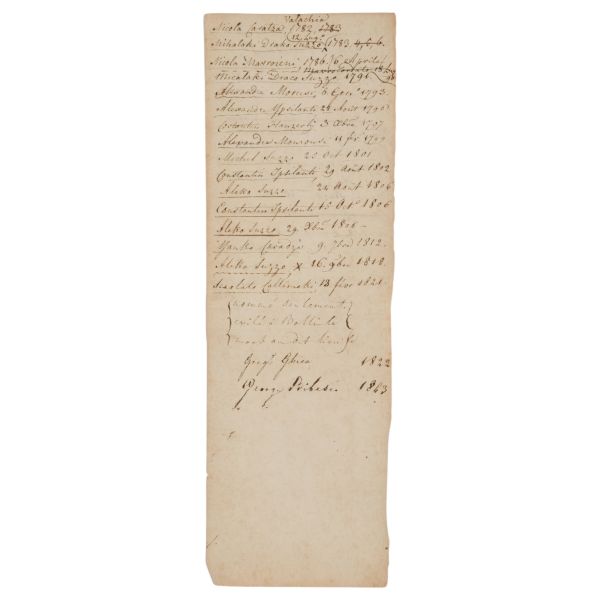 Valachia
Nicola Caratza 1782 1783
12 Aug
Mihalaki Drako Suzzo 1783. 4, 5, 6.
Nicola Mavroieni, 1786, 6, Aprile
Mavrocordato
Micalaki Draco Suzzo 1791
Alexandre Morousi, 1793.
Alexandre Ypsilanti 22 Aout 1796
Costantin Hanzerly 3 Xbre 1797
Alexandre Mourousi 11 fev 1799
Michel Suzzo 20 Oct 1801
Constantin Ipsilanti, 29 aout 1802
Aleko Suzzo 24 Aout 1806
Constantin Ipsilanti 15 1806
Aleko Suzzo 29 Xbre 1806 -
Yanko Caradja 9. 1812.
Aleko Suzzo x 16. 9bre 1818.
Scarlato Callimaki, 18 fevr 1821 -
nommé seulement.
exilé à
mort
Greg Ghica 1822
George Bibesco 1843